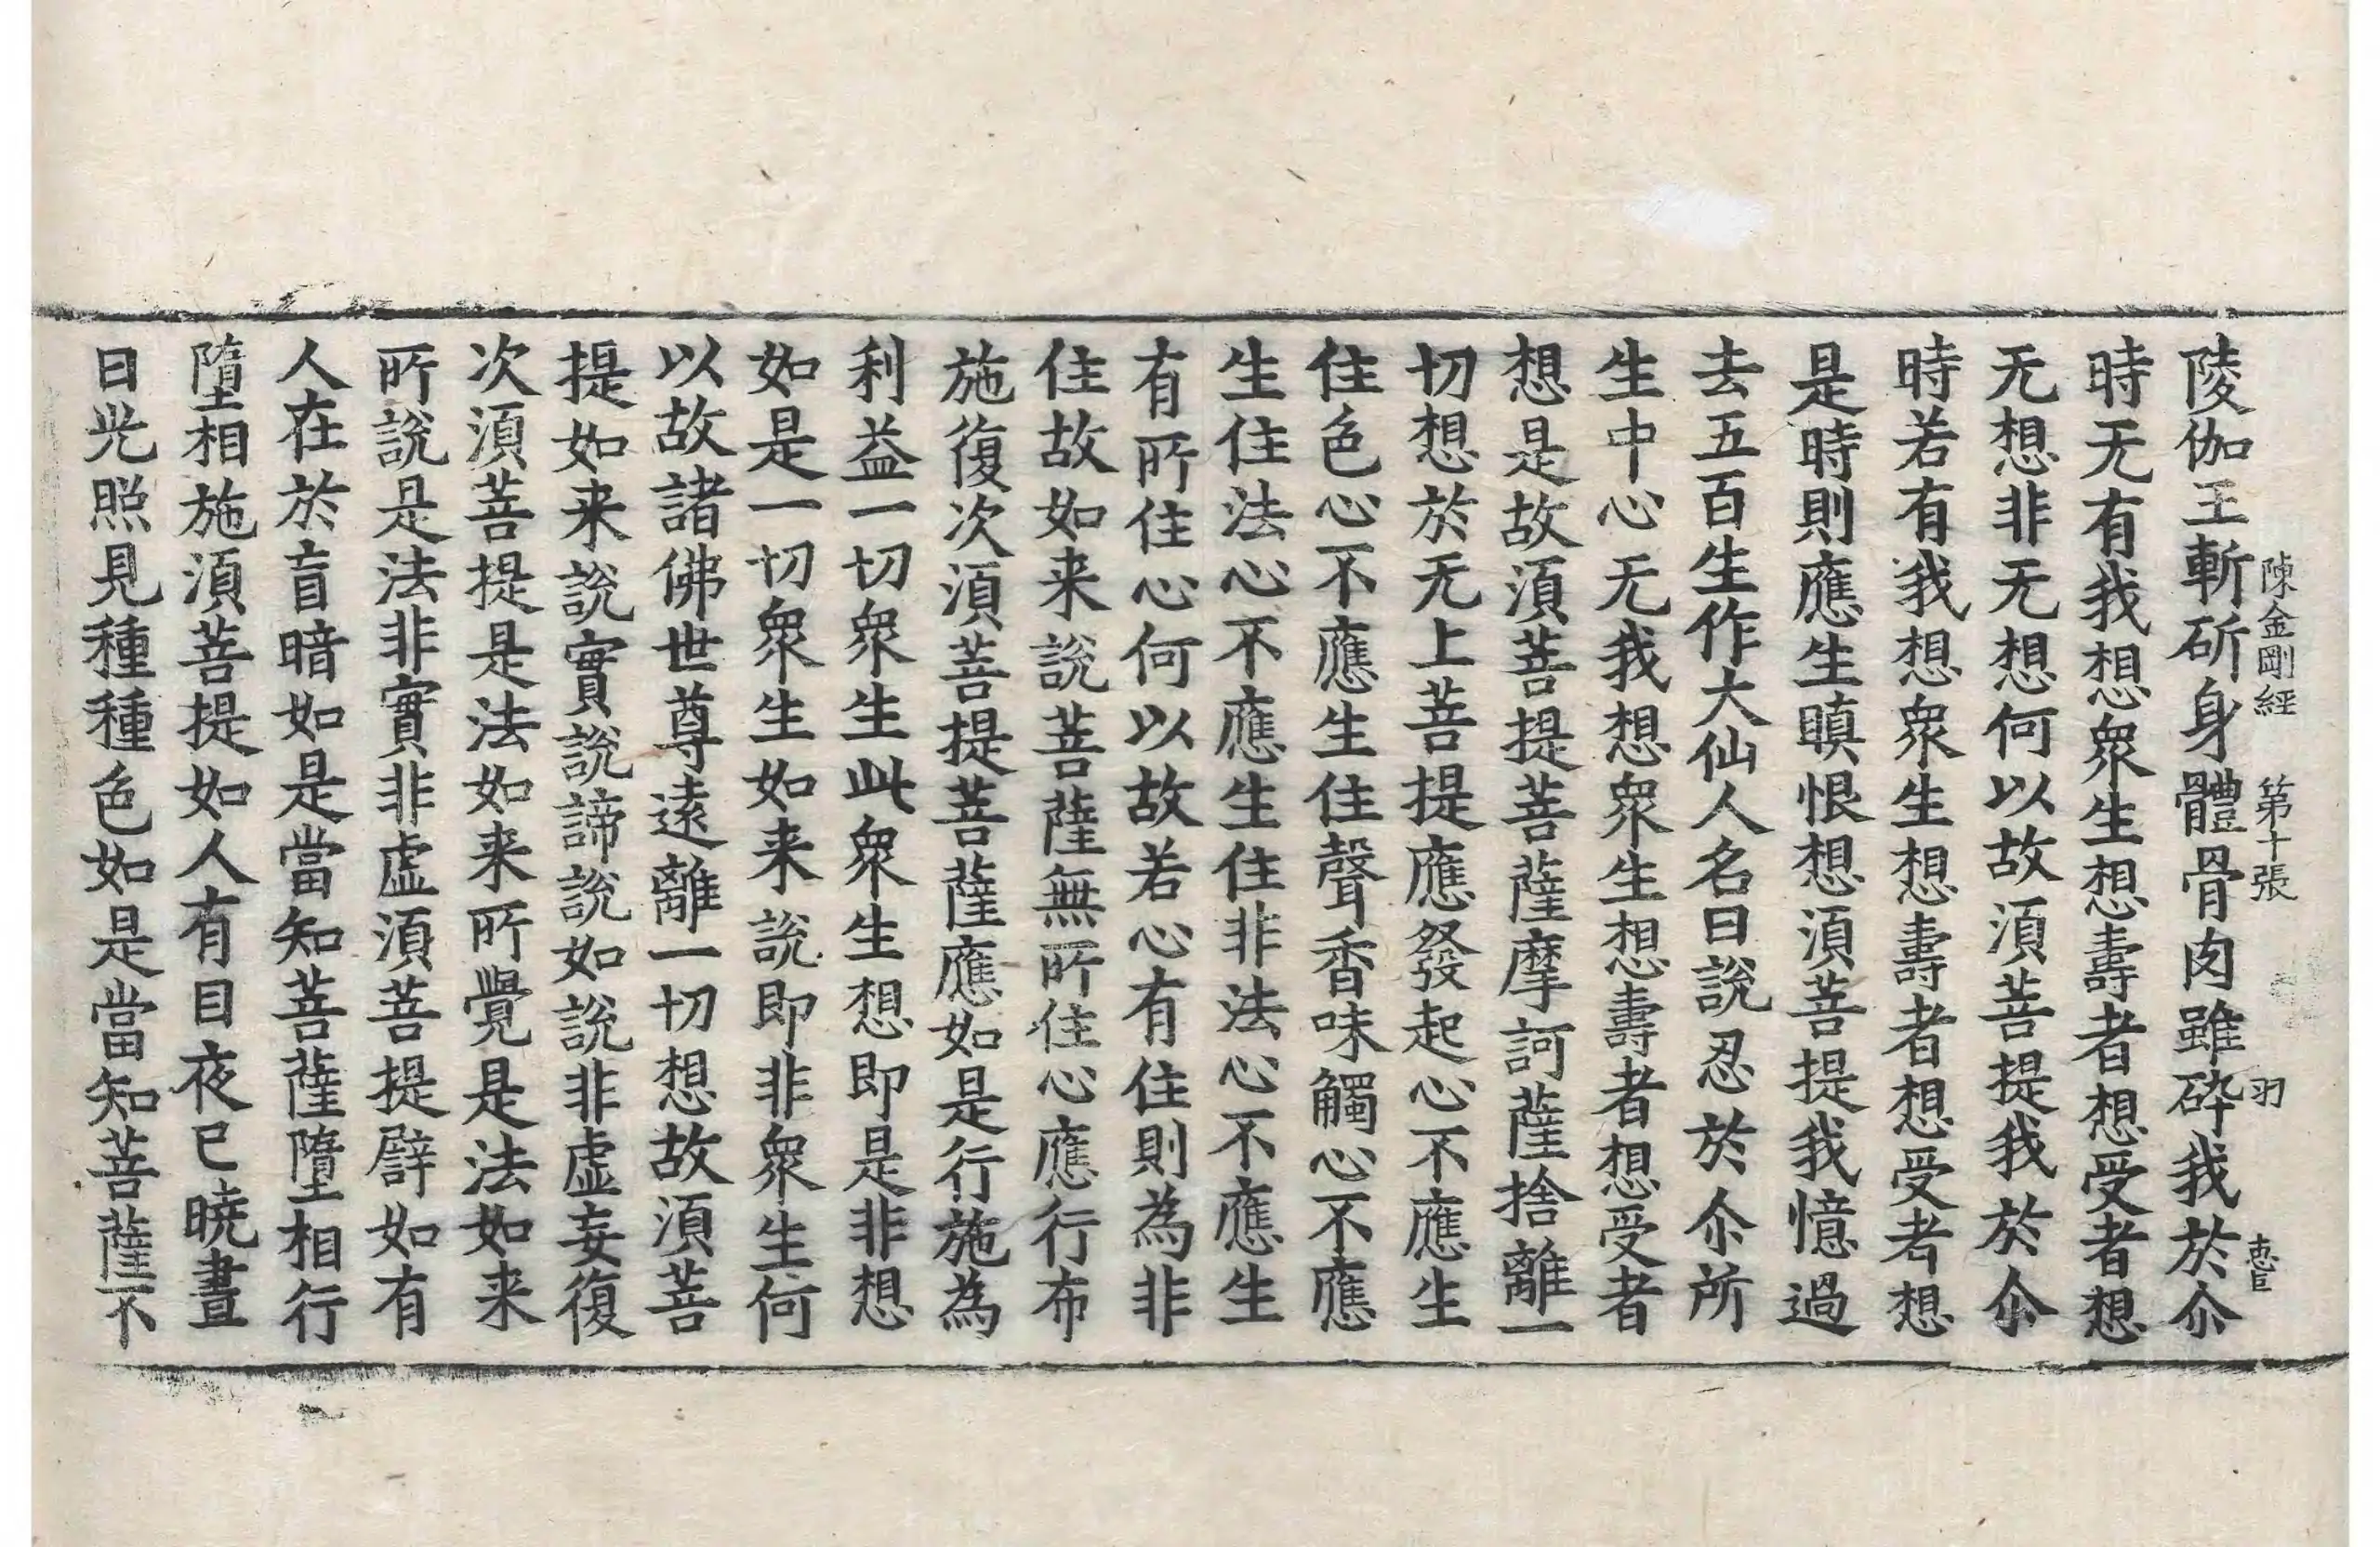 陳金剛經 第十張 羽
陵伽王斬斫身體骨肉雖碎我於尒
時无有我想衆生想壽者想受者想
无想非无想何以故須菩提我於尒
時若有我想衆生想壽者想受者想
是時則應生瞋恨想須菩提我憶過
去五百生作大仙人名曰說忍於尒所
生中心无我想衆生想壽者想受者
想是故須菩提菩薩摩訶薩捨離一
切想於无上菩提應發起心不應生
住色心不應生住聲香味觸心不應
生住法心不應生住非法心不應生
有所住心何以故若心有住則為非
住故如来說菩薩無所住心應行布
施復次須菩提菩薩應如是行施為
利益一切衆生此衆生想即是非想
如是一切衆生如来說即非衆生何
以故諸佛世尊遠離一切想故須菩
提如来說實說諦說如說非虛妄復
次須菩提是法如来所覺是法如来
所說是法非實非虛須菩提譬如有
人在於盲暗如是當知菩薩墮相行
墮相施須菩提如人有目夜已曉晝
日光照見種種色如是當知菩薩不